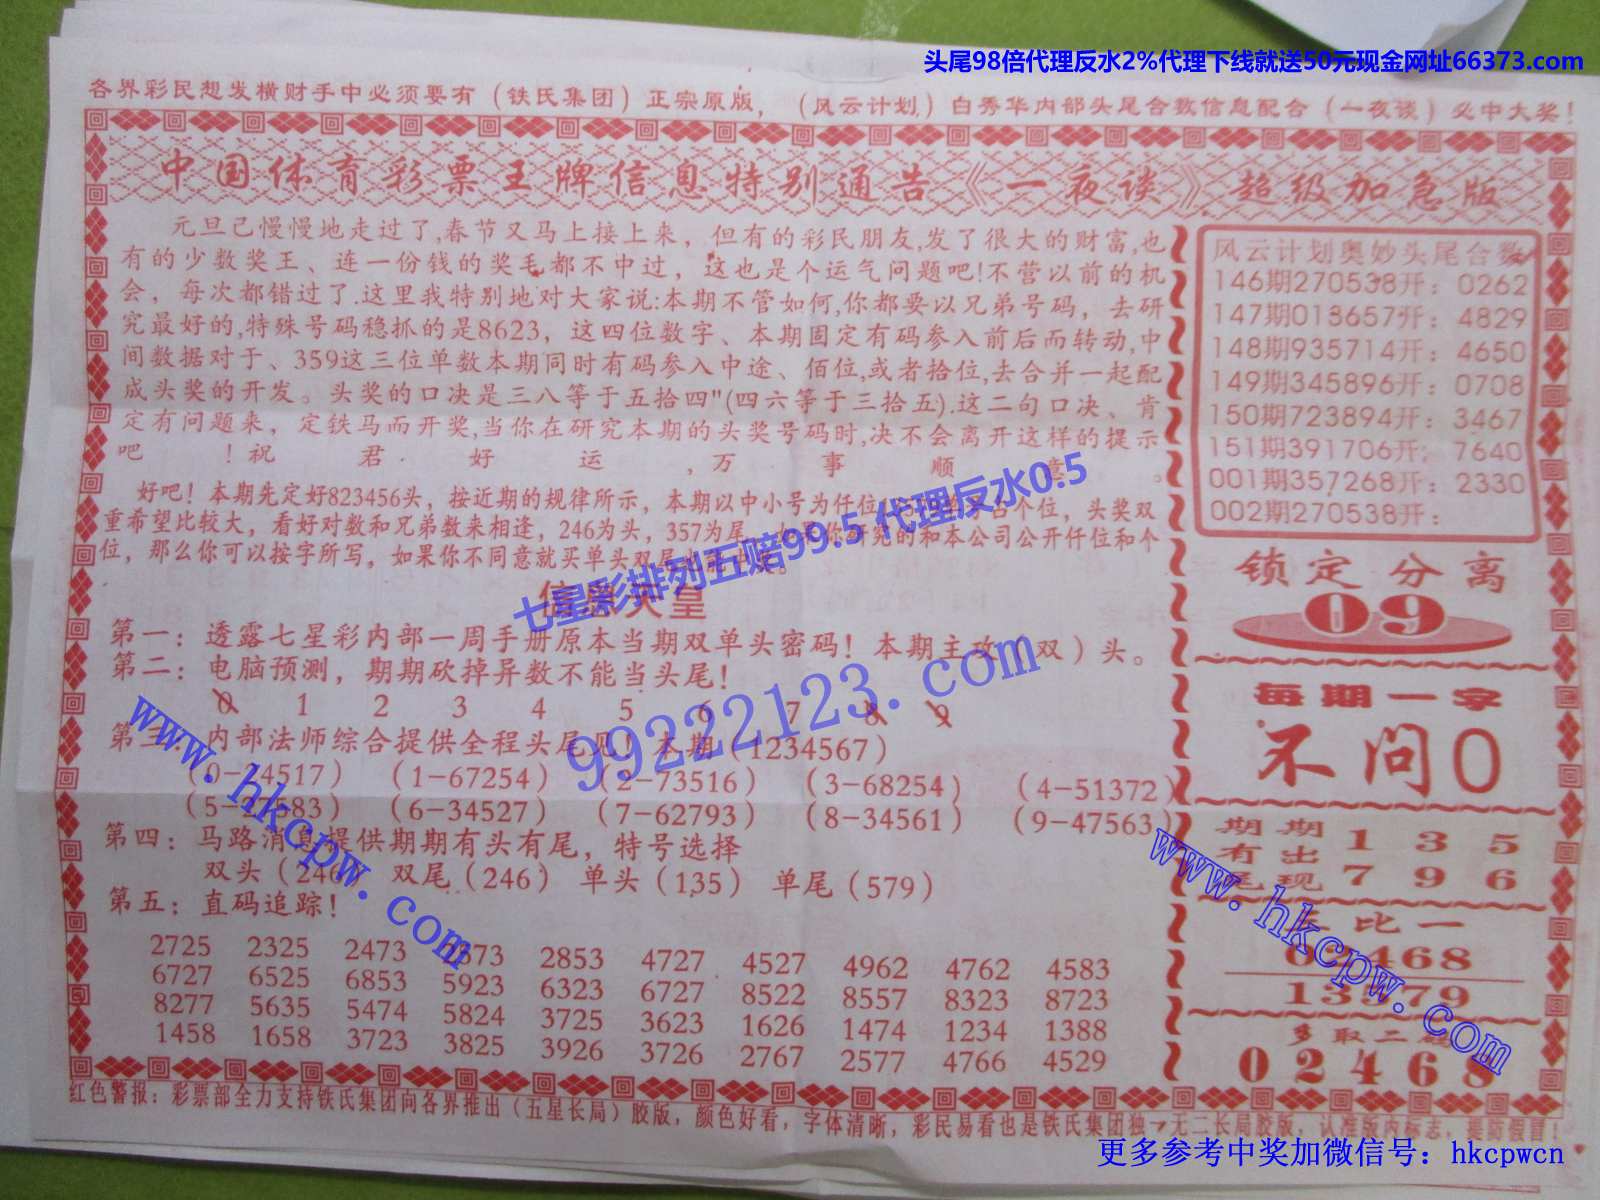 头尾98倍代理反水2%代理下线就送50元现金网址66373.com
各界彩民想发横财手中必须要有（铁氏集团）正宗原版，（风云计划）白秀华内部头尾合数信息配合（一夜谈）必中大奖！
中国体育彩票王牌信息特别通告《一夜谈》超级加急版
元旦己慢慢地走过了,春节又马上接上来，但有的彩民朋友,发了很大的财富,也
有的少数奖王、连一份钱的奖毛都不中过，这也是个运气问题吧!不营以前的机
会，每次都错过了.这里我特别地对大家说:本期不管如何,你都要以兄弟号码，去研
究最好的,特殊号码稳抓的是8623，这四位数字、本期固定有码参入前后而转动,中
间数据对于、359这三位单数本期同时有码参入中途、佰位,或者拾位,去合并一起配
成头奖的开发。头奖的口决是三八等于五拾四"(四六等于三拾五).这二句口决、肯
定有问题来，定铁马而开奖,当你在研究本期的头奖号码时,决不会离开这样的提示
吧！祝君好运,万事顺意。
好吧！本期先定好823456头，按近期的规律所示，本期以中小号为仟位 个位，头奖双
重希望比较大，看好对数和兄弟数来相逢，246为头，357为尾， 如果你研究的和本公司公开仟位和个
位，那么你可以按字所写，如果你不同意就买单头双尾
七星彩排列五赔99.5 代理反水0.5
第一：透露七星彩内部一周手册原本当期双单头密码！本期主攻（双）头。
第二：电脑预测，期期砍掉异数不能当头尾！
0 1 2 3 4 5 6 7 8 9
第三：内部法师综合提供全程头尾见！本期（1234567）
（0-24517）（1-67254）（2-73516）（3-68254）（4-51372）
（5-27583）（6-34527）（7-62793）（8-34561）（9-47563）
第四：马路消息提供期期有头有尾，特号选择
双头（246）双尾（246）单头（135）单尾（579）
第五：直码追踪！
2725 2325 2473 2573 2853 4727 4527 4962 4762 4583
6727 6525 6853 5923 6323 6727 8522 8557 8323 8723
8277 5635 5474 5824 3725 3623 1626 1474 1234 1388
1458 1658 3723 3825 3926 3726 2767 2577 4766 4529
风云计划奥妙头尾合数
146期270538开：0262
147期013657开：4829
148期935714开：4650
149期345896开：0708
150期723894开：3467
151期391706开：7640
001期357268开：2330
002期270538开：
锁定分离
09
每期一字
不问0
期期 1 3 5
有出
尾现 7 9 6
比一
02468
13579
多取二
02468
99222123.com
www.hkcpw.com
www.hkcpw.com
红色警报：彩票部全力支持铁氏集团向各界推出（五星长局）胶版，颜色好看，字体清晰，彩民易看也是铁氏集团独一无二长局胶版，认准版内标志，提防假冒！
更多参考中奖加微信号：hkcpwcn